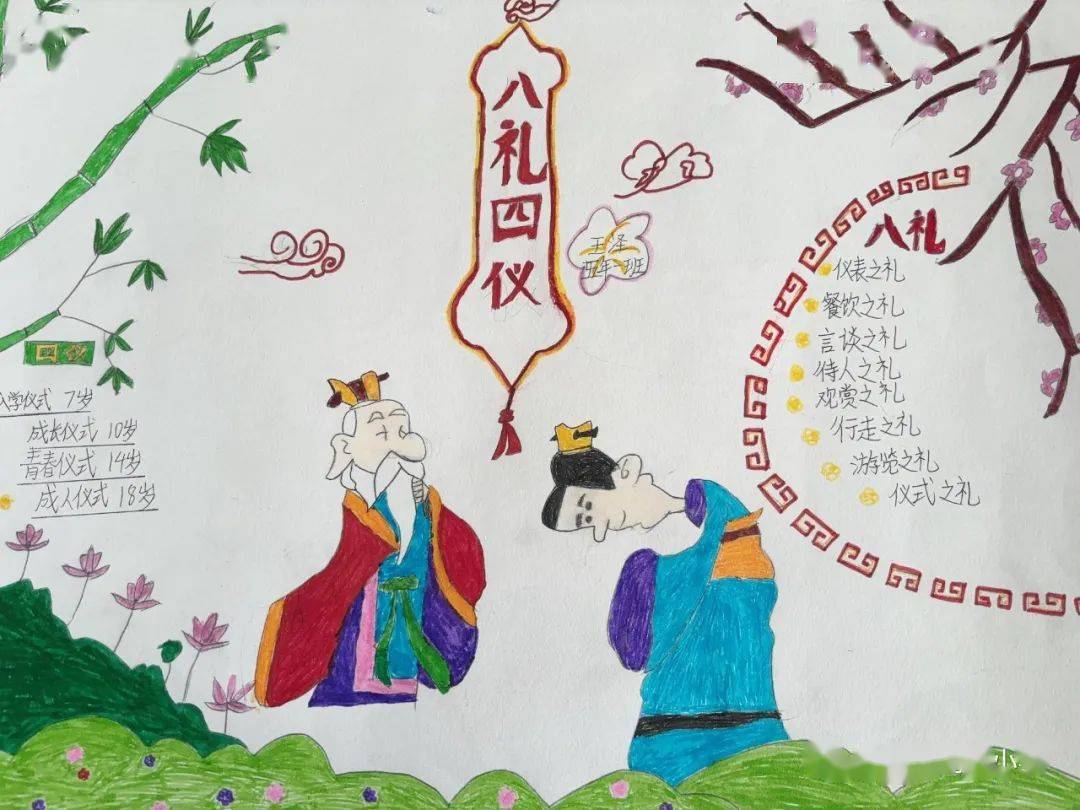 八礼四仪
王泽
五年一班
八礼
仪表之礼
餐饮之礼
言谈之礼
待人之礼
观赏之礼
行走之礼
游览之礼
仪式之礼
四仪
入学仪式 7岁
成长仪式 10岁
青春仪式 14岁
成人仪式 18岁